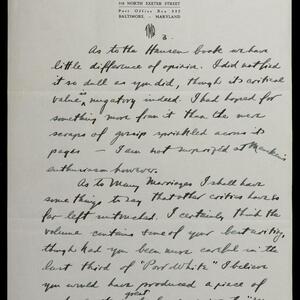 NORTH EXETER STREET
Post Office Box
BALTIMORE - MARYLAND
3.
As to the Hansen book we have
little difference of opinion. I did not find
it so dull as you did, though its critical
value is negatory indeed. I had hoped for
something more from it than the mere
scraps of gossip sprinkled across its
pages — I am not surprised at Mencken's
enthusiasm however.
As to Many Marriages I shall have
some things to say that other critics have so
far left untouched. I certainly think the
volume contains some of your best writing,
though had you been more careful in the
last third of "Poor White" I believe
you would have produced a piece of
great